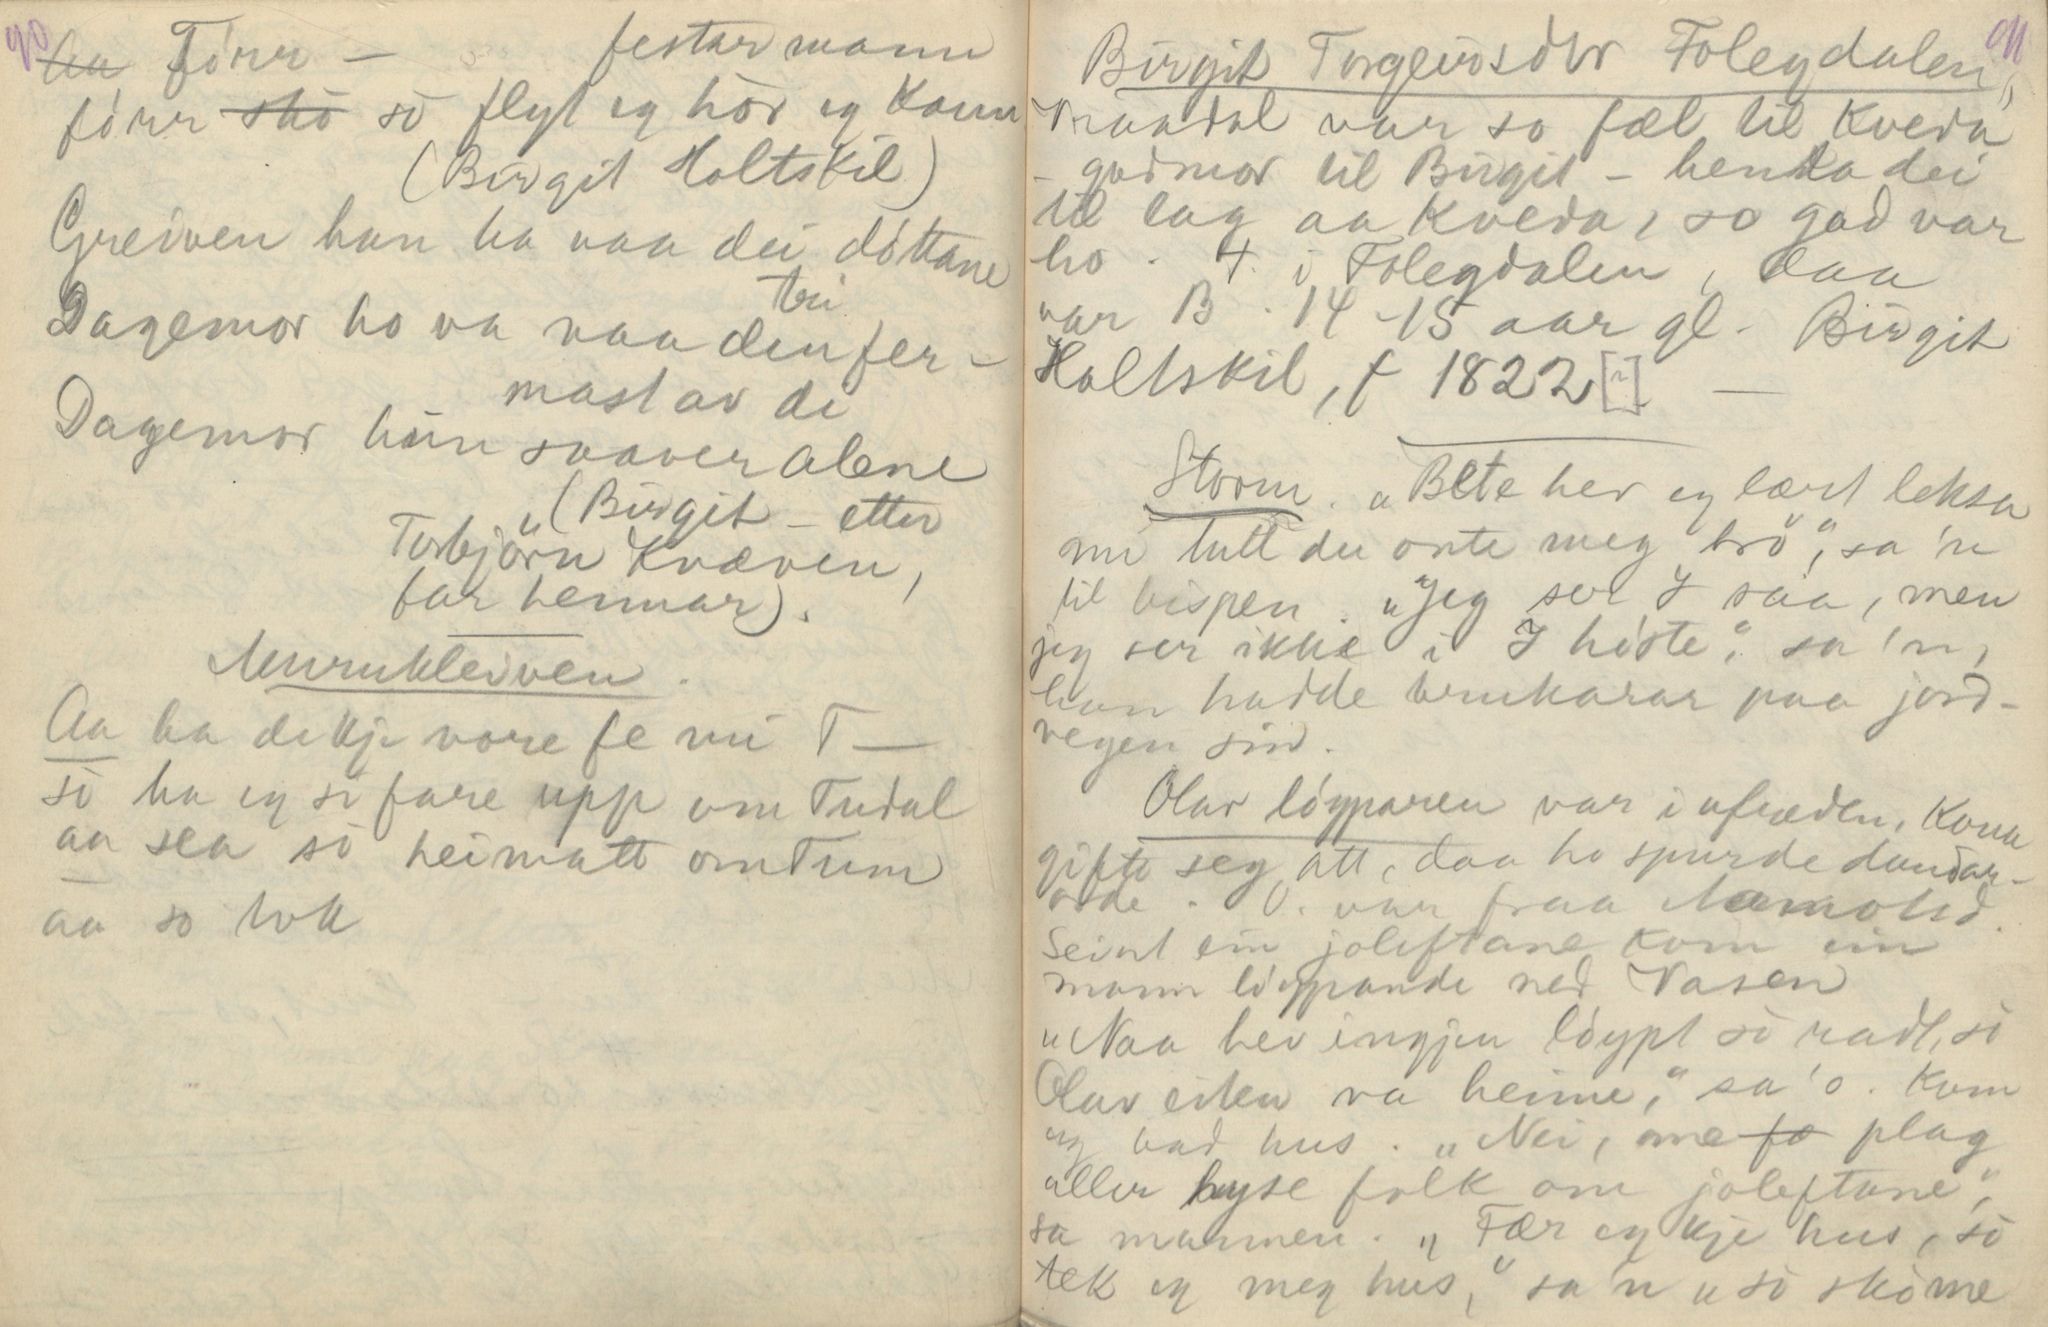 90
ha Fórr — festarmann
fórr skó só flyt eg hór eg kann
(Birgit Holtskil)
Greiven han ha vaa dei dóttane
tri
Dagemor ho va vaa den fer-
mast av di
Dagemor hún saaver alene
„(Birgit – etter
Torbjörn Kvæven,
far hennar).
Murukleiven.
Aa ha dikkje vore fe mi T —
só ha eg só fare upp um Tudal
aa sea só heimatt om Tum
aa so tok
91
Birgit Torgeirsdtr Folegdalen,
Vraadal var so fæl til kveda
- godmor til Birgit – henta dei
til lag aa kveda, so god var
ho. † i Folegdalen, daa
var B. 14-15 aar gl. Birgit
Holtskil, f 1822 [?] —
Storm. „Bete hev eg lært leksa
mi tutt du onte meg brö", sa 'n
til bispen. „Jeg ser I saa, men
jeg ser ikke i I hóste", sa 'n,
han hadde brukarar paa jord-
vegen sin.
Olav lóyparen var i ufreden, Kona
gifte seg att, daa ho spurde daudar-
orde. O. var fraa
Seint ein joleftane kom ein
mann lóypande ned Vasen
„Naa hev ingjen lóypt só radt, só
Olav eiken va heime," sa 'o. Kom
og bad hus. „Nei, me fo plag
aller hyse folk om joleftane",
sa mannen. „Fær eg kje hus, só
tek eg meg hus," sa 'n „só skó me